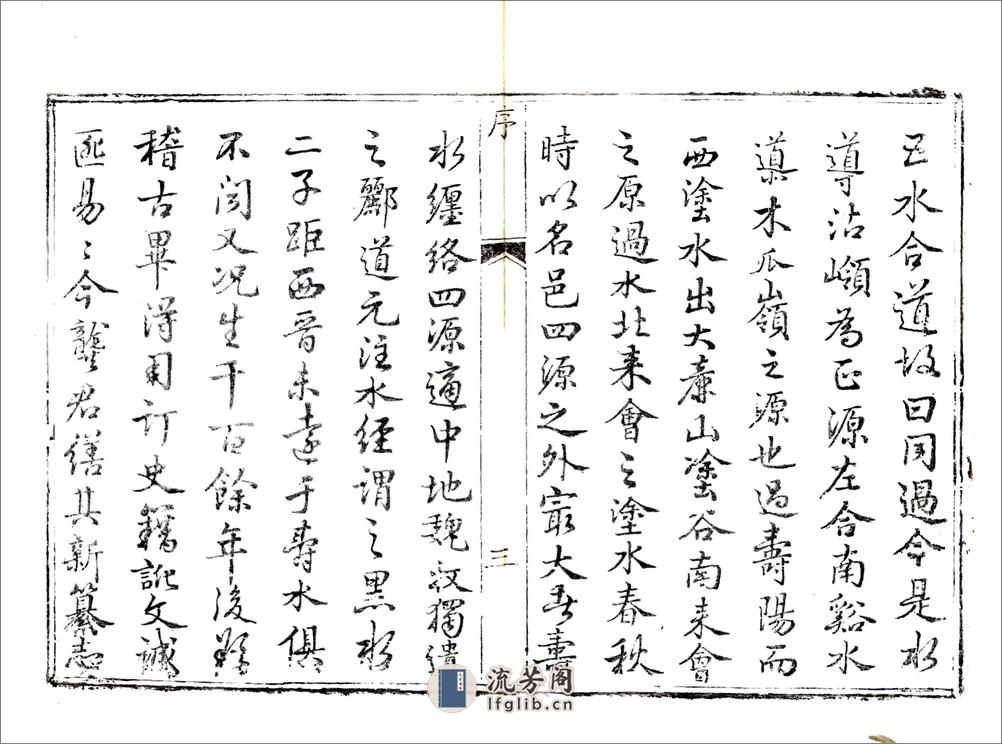 五水合道故曰同過今是水
導沾嶺為正源左合南谿水
導木瓜嶺之源也過壽陽而
西塗水出大廉山塗谷南来會
之原過水北来會之塗水春秋
時以名邑四源之外㝡大者壽
序
三
水纏絡四源適中地魏収獨遺
之酈道元注水經謂之黑水
二子距西晉未遠于壽水俱
不闻又况生千百餘年後
稽古畢淂用訂史籍訛文誠
匪易〻今龔君繕其新纂志
流芳阁
lfglib.cn